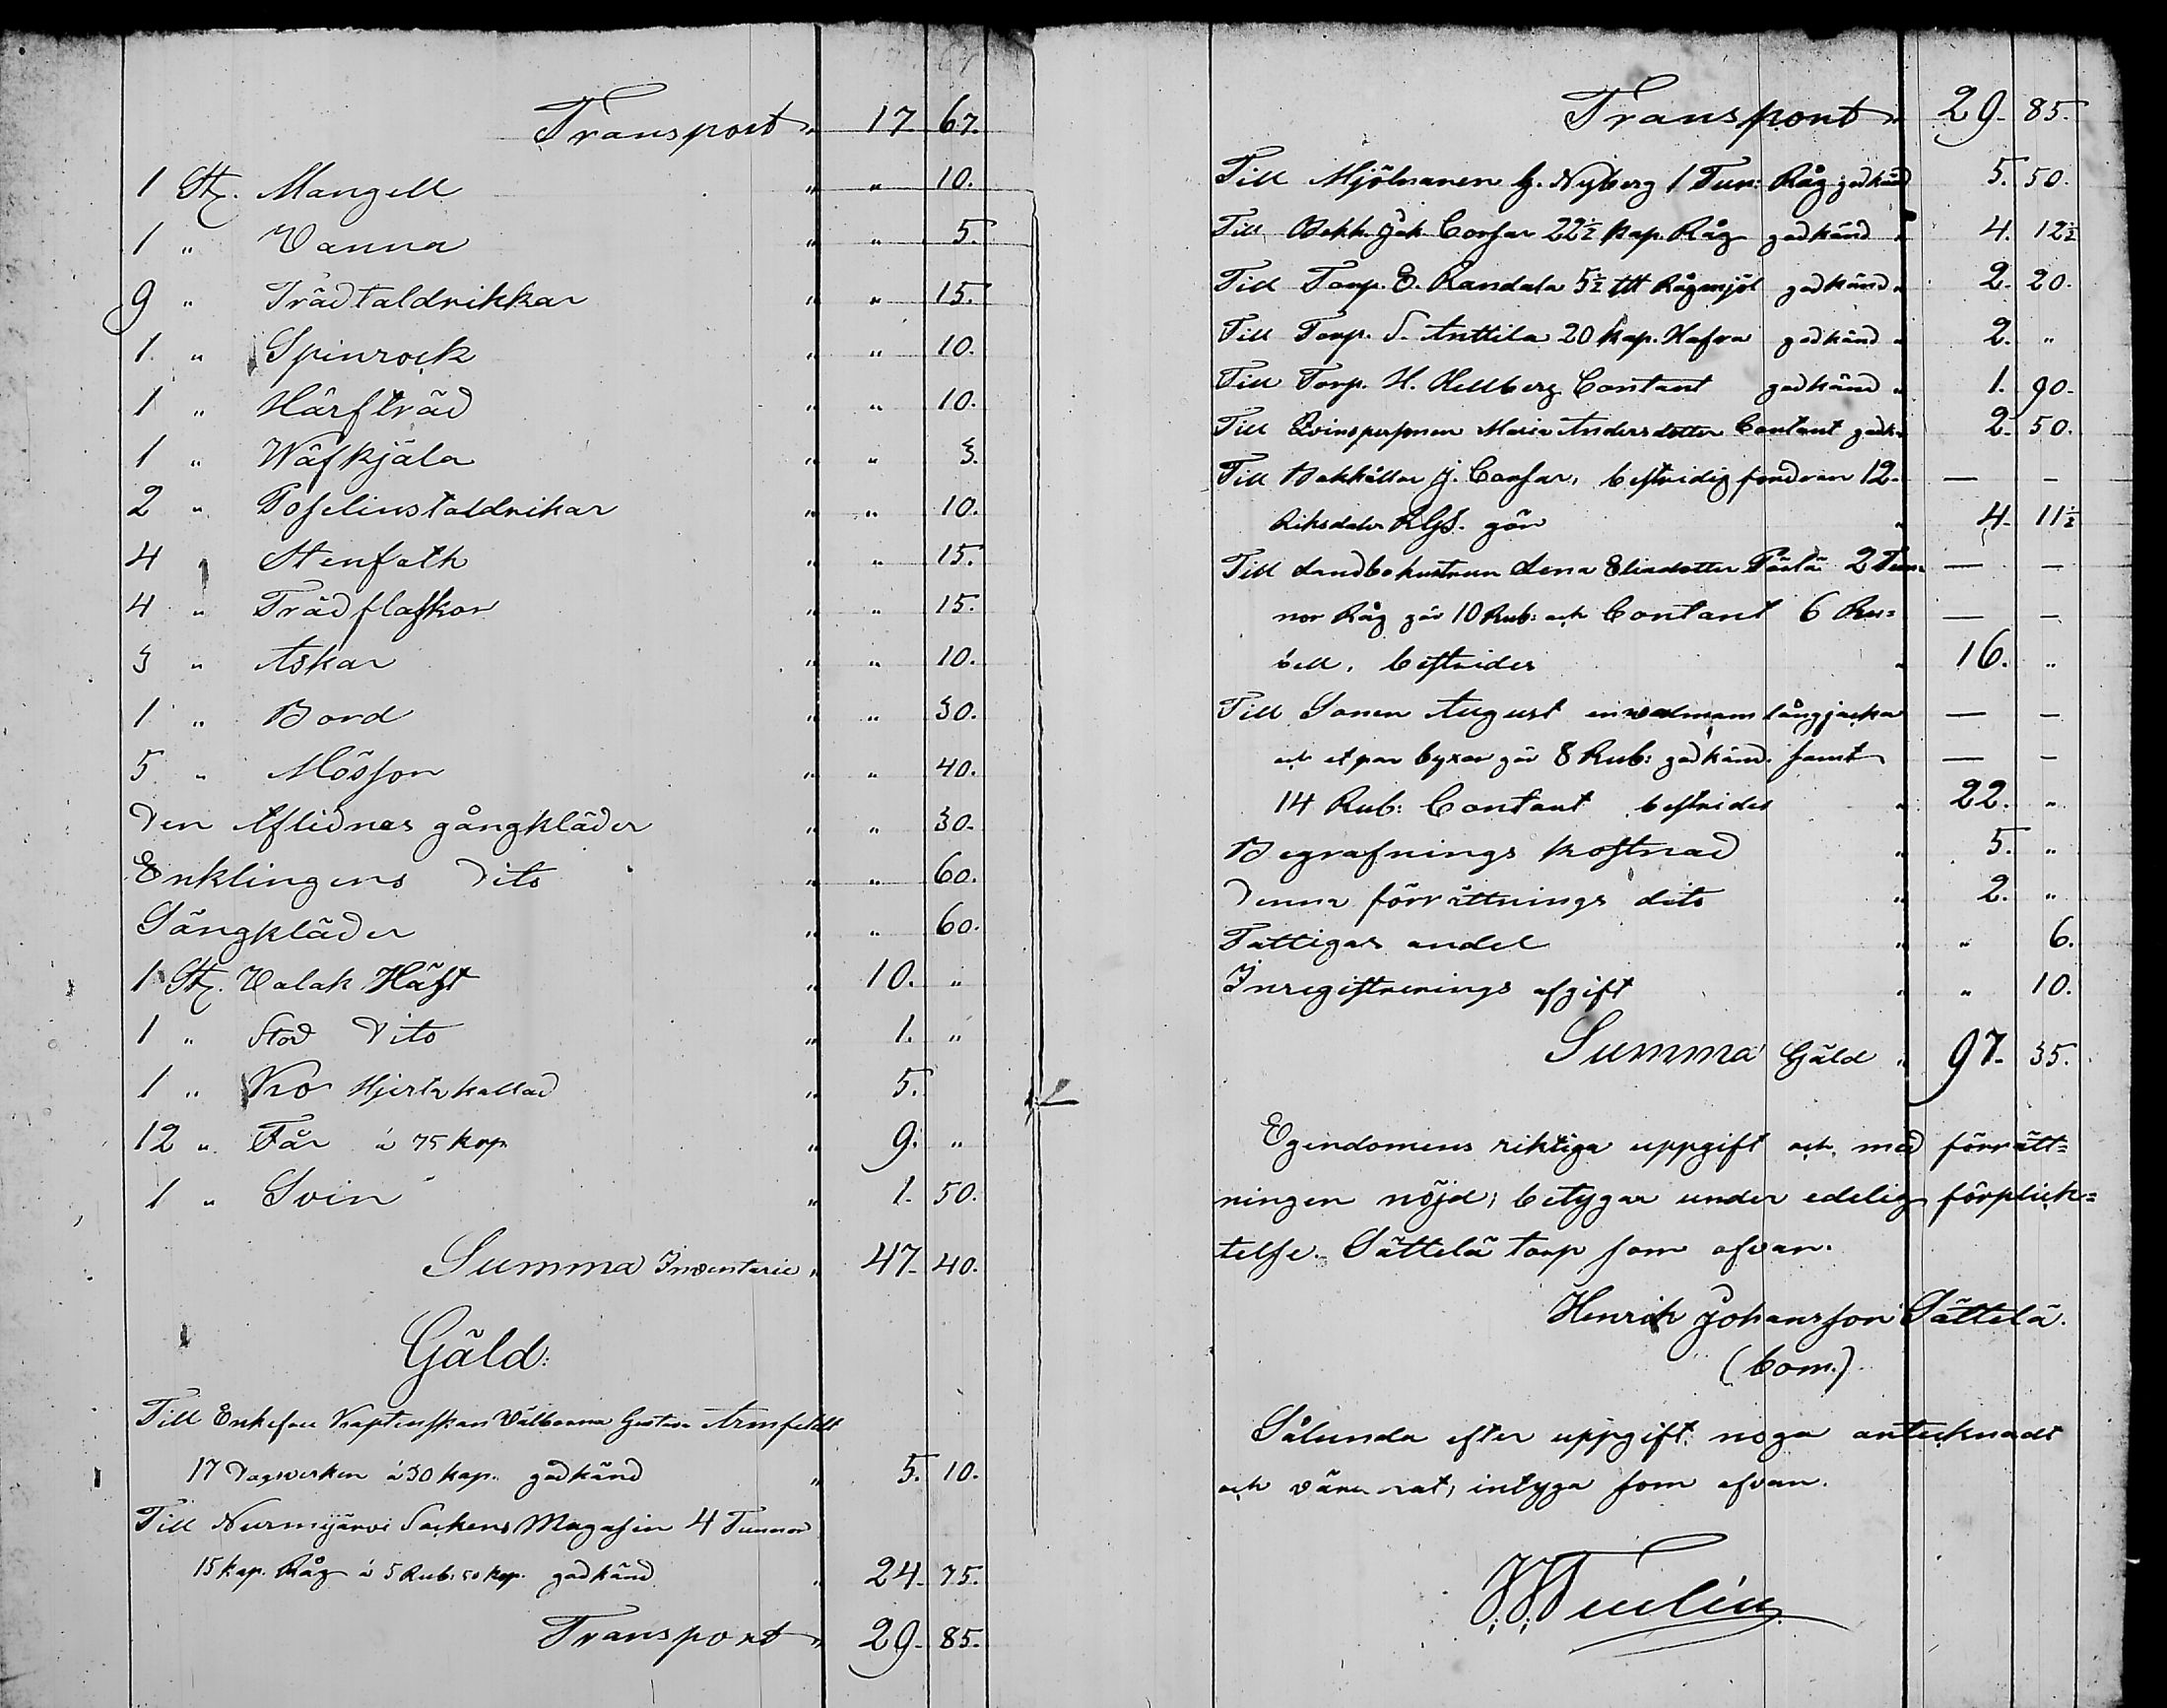 Transport " 17. 67.
1 St. Mangell " " 10.
1 " Vanna " " 5.
9 " Trädtaldrikkar " " 15.
1 " Spinrock " " 10.
1 " Härfträd " " 10.
1 " Wäfkjäla " " 3.
2 " Poselinstaldrikar " " 10.
4 " Stenfath " " 15.
4 " Trädflaskor " " 15.
3 " Askar " " 10.
1 " Bord " " 30.
5 " Mössor " " 40.
Den Aflidnas gångkläder " " 30.
Enklingens Dito " " 60.
Sängkläder " " 60.
1 St. Valak Häst " 10. "
1 " Stod Dito " 1. "
1 " Ko Hjerta kallad " 5.
12 " Får á 75 kop " 9. "
1 " Svin " 1. 50.
Summa Inventarie " 47. 40.
Gäld:
Till Enkefru Kaptenskan Välborna Gustava Armfeldt
17 Dagsverken á 30 kap. godkänd " 5. 10.
Till Nurmijärvi Sockens Magasin 4 Tunnor
15 kap. Råg á 5 Rub: 50 kop. godkänd " 24. 75.
Transport " 29. 85.
Transport " 29. 85.
Till Mjölnaren G. Nyberg 1 Tun: Råg godkänd 5. 50.
Till Bokh. Joh Corsar 22½ kap. Råg godkänd " 4. 12½
Till Torp. E. Randala 5½ ltt Rågmjöl godkänd " 2. 20.
Till Torp. S. Anttila 20 kap. Hafra godkänd " 2. "
Till Torp. H. Hellberg Contant godkänd " 1. 90.
Till Qvinspersonen Maria Andersdotter Contant godk. 2. 50.
Till Bokhållar J. Corsar, bestridig fordran 12. — —
Riksdaler RGS. gör " 4. 11½
Till Landbohustrun Lena Eliadotter Pärlä 2 Tun= — —
nor Råg gör 10 Rub: och Contant 6 Ru= — —
bell, bestrides " 16. "
Till Sonen August en valmans långjacka — —
och et par byxor gör 8 Rub: godkänd samt — —
14 Rub: Contant bestrides " 22. "
Begrafnings kostnad " 5. "
Denna förrättnings dito " 2. "
Fattigas andel " " 6.
Inregistrerings afgift " " 10.
Summa Gäld " 97. 35.
Egendomens riktiga uppgift och med förrätt=
ningen nöjd; betygar under edelig förplick=
telse. Sättelä torp som ofvan.
Henrik Johansson Sättelä.
(bom.)
Sålunda efter uppgift noga antecknadt
och värderat, intyga som ofvan.